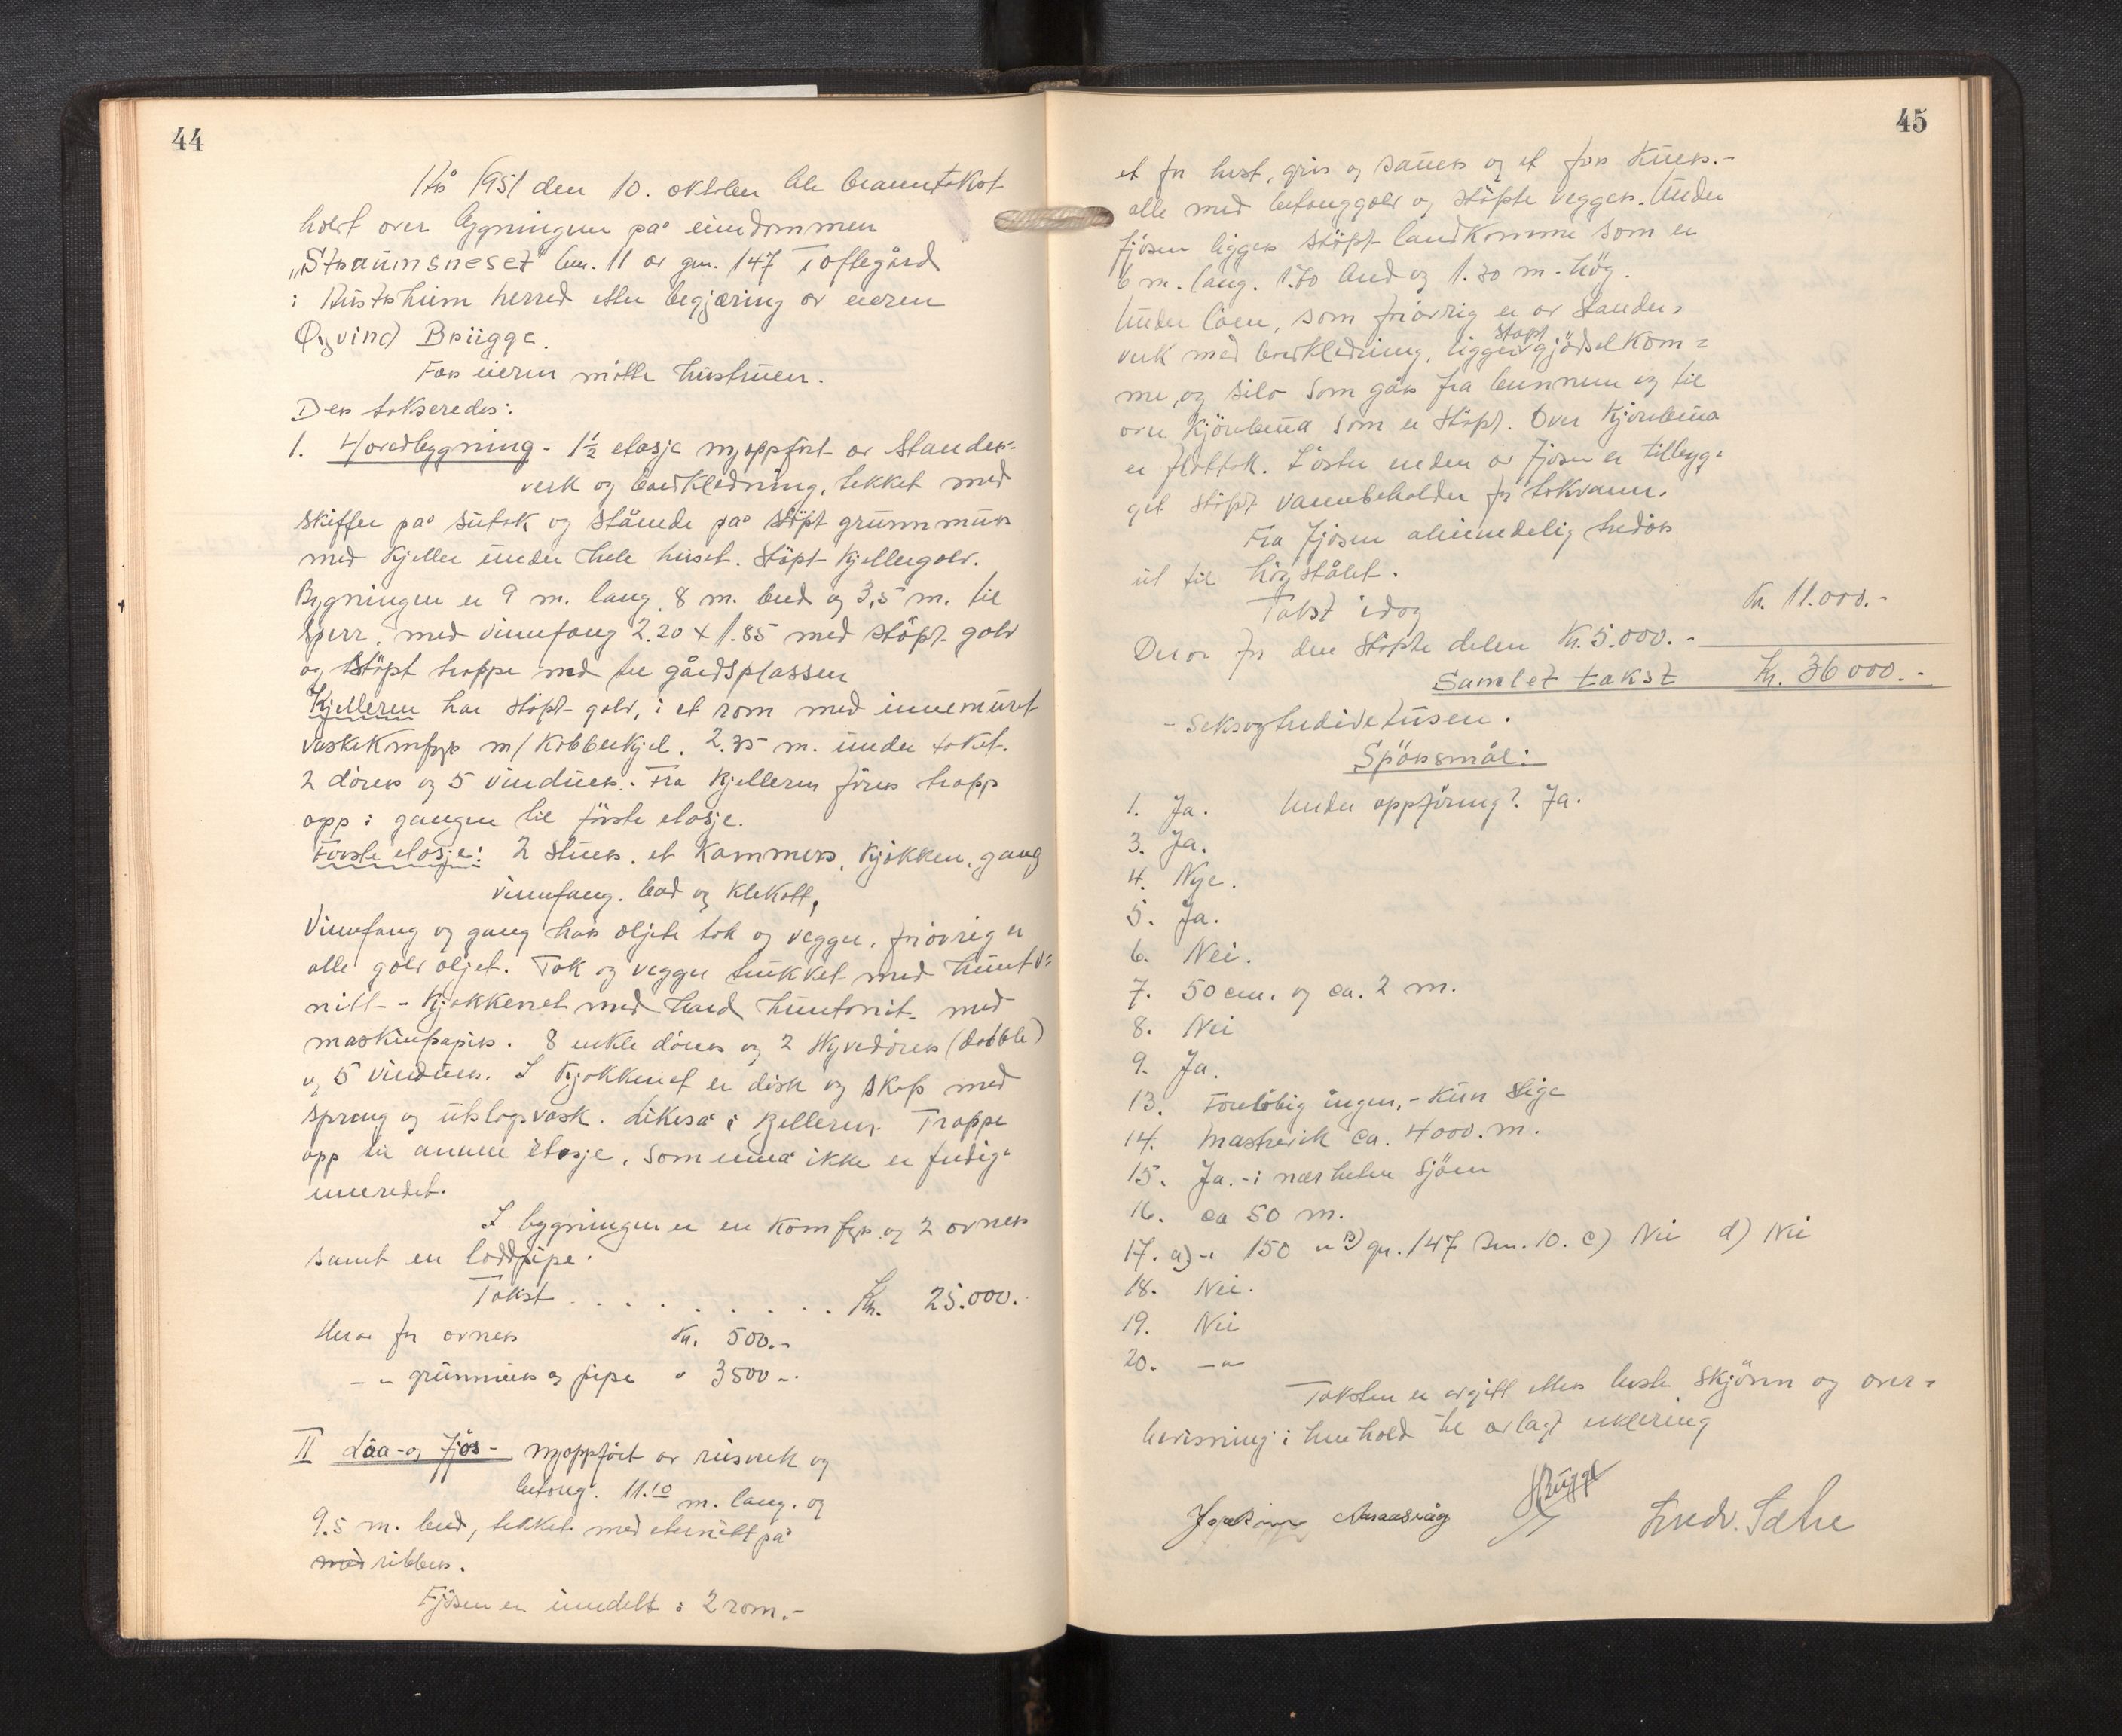 44
År 1951 den 10. oktober ble branntakst
holdt over bygningene på eiendommen
„Straumsneset" bnr. 11 av gnr. 147 Toftegård
i herred etter begjæring av eieren
Øyvind Brügge.
For eieren møtte hustruen.
Der takseredes:
1. Hovedbygning - 1½ etasje nyoppført av stender-
verk og bordkledning, tekket med
skiffer på sutak og stående på støpt grunnmur
med kjeller under hele huset. Støpt kjellergolv.
Bygningen er 9 m. lang, 8 m. bred og 3,5 m. til
sperr, med vinnfang 2.20 x 1.85 med støpt golv
og støpt trappe ned til gårdsplassen
Kjelleren har støpt golv, i et rom med innemuret
vaskekomfyr m/ kobberkjel. 2.35 m. under taket.
2 dører og 5 vinduer. Fra kjelleren fører trapp
opp i gangen til første etasje.
Første etasje: 2 stuer, et kammers, kjøkken, gang
vinnfang, bad og klekott,
Vinnfang og gang har oljete tak og vegger, forøvrig er
alle golv oljet. Tak og vegger trukket med hunto-
nitt - kjøkkenet med hard huntonit - med
maskinpapir. 8 enkle dører og 2 skyvedører (doble)
og 5 vinduer. I kjøkkenet er disk og skap med
spreng og utslagsvask. Likeså i kjelleren. Trappe
opp til annen etasje, som ennå ikke er ferdig
inneredet.
I bygningen er en komfyr og 2 ovner
samt en loddpipe.
Takst . . . . . . . . . Kr. 25.000.
Herav for ovner Kr. 500.-
-"- grunnmur og pipe " 3500-.
II Løa- og fjøs - nyoppført av reisverk og
betong. 11.10 m. lang, og
9.5 m. bred, tekket med eternitt på
med ribber.
Fjøsen er inndelt i 2 rom.-
45
et for hest, gris og sauer og et for kuer.-
alle med betonggolv og støpte vegger. Under
fjøsen ligger støpt landkomme som er
6 m. lang, 1.70 bred og 1.30 m. høg.
Under løen, som forøvrig er av stender-
verk med bordkledning, ligger støpt gjødselkom-
me, og silo som går fra bunnen og til
over kjørebrua som er støpt. Over kjørebrua
er flattak. I østre enden av fjøsen er tilbyg-
get støpt vannbeholder for takvann.
Fra fjøsen alminnelig tredør
ut til høystålet.
Takst idag Kr. 11.000.-
Derav for den støpte delen Kr. 5.000.-
Samlet takst Kr. 36000.-
- Seksogtredivetusen.
Spørsmål:
1. Ja. Under oppføring? Ja.
3. Ja.
4. Nye.
5. Ja.
6. Nei.
7. 50 cm. og ca. 2 m.
8. Nei
9. Ja.
13. Foreløbig ingen, - kun stige
14. Mastrevik ca. 4000 m.
15. Ja. - i nærheten sjøen
16. ca 50 m.
17. a) - 150 m b) gnr. 147 bnr. 10. c) Nei d) Nei
18. Nei.
19. Nei
20. -"-
Taksten er avgitt etter beste skjønn og over-
bevisning i henhold til avlagt erklæring